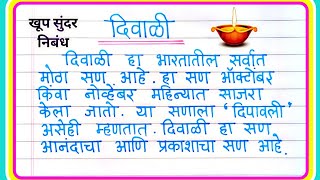 खूप सुंदर
निबंध
दिवाळी
दिवाळी हा भारतातील सर्वात
मोठा सण आहे. हा सण ऑक्टोंबर
किंवा नोव्हेंबर महिन्यात साजरा
केला जातो. या सणाला 'दिपावली'
असेही म्हणतात. दिवाळी हा सण
आनंदाचा आणि प्रकाशाचा सण आहे.